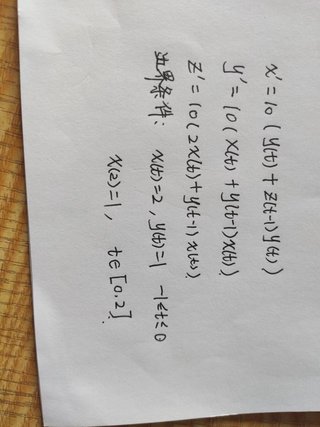 x' = 10 ( y(t) + z(t-1) y(t) )
y' = 10 ( x(t) + y(t-1) x(t) )
z' = 10 ( 2x(t) + y(t-1) x(t) )
边界条件: x(t)=2, y(t)=1 -1≤t≤0
x(2)=1, t∈[0,2].